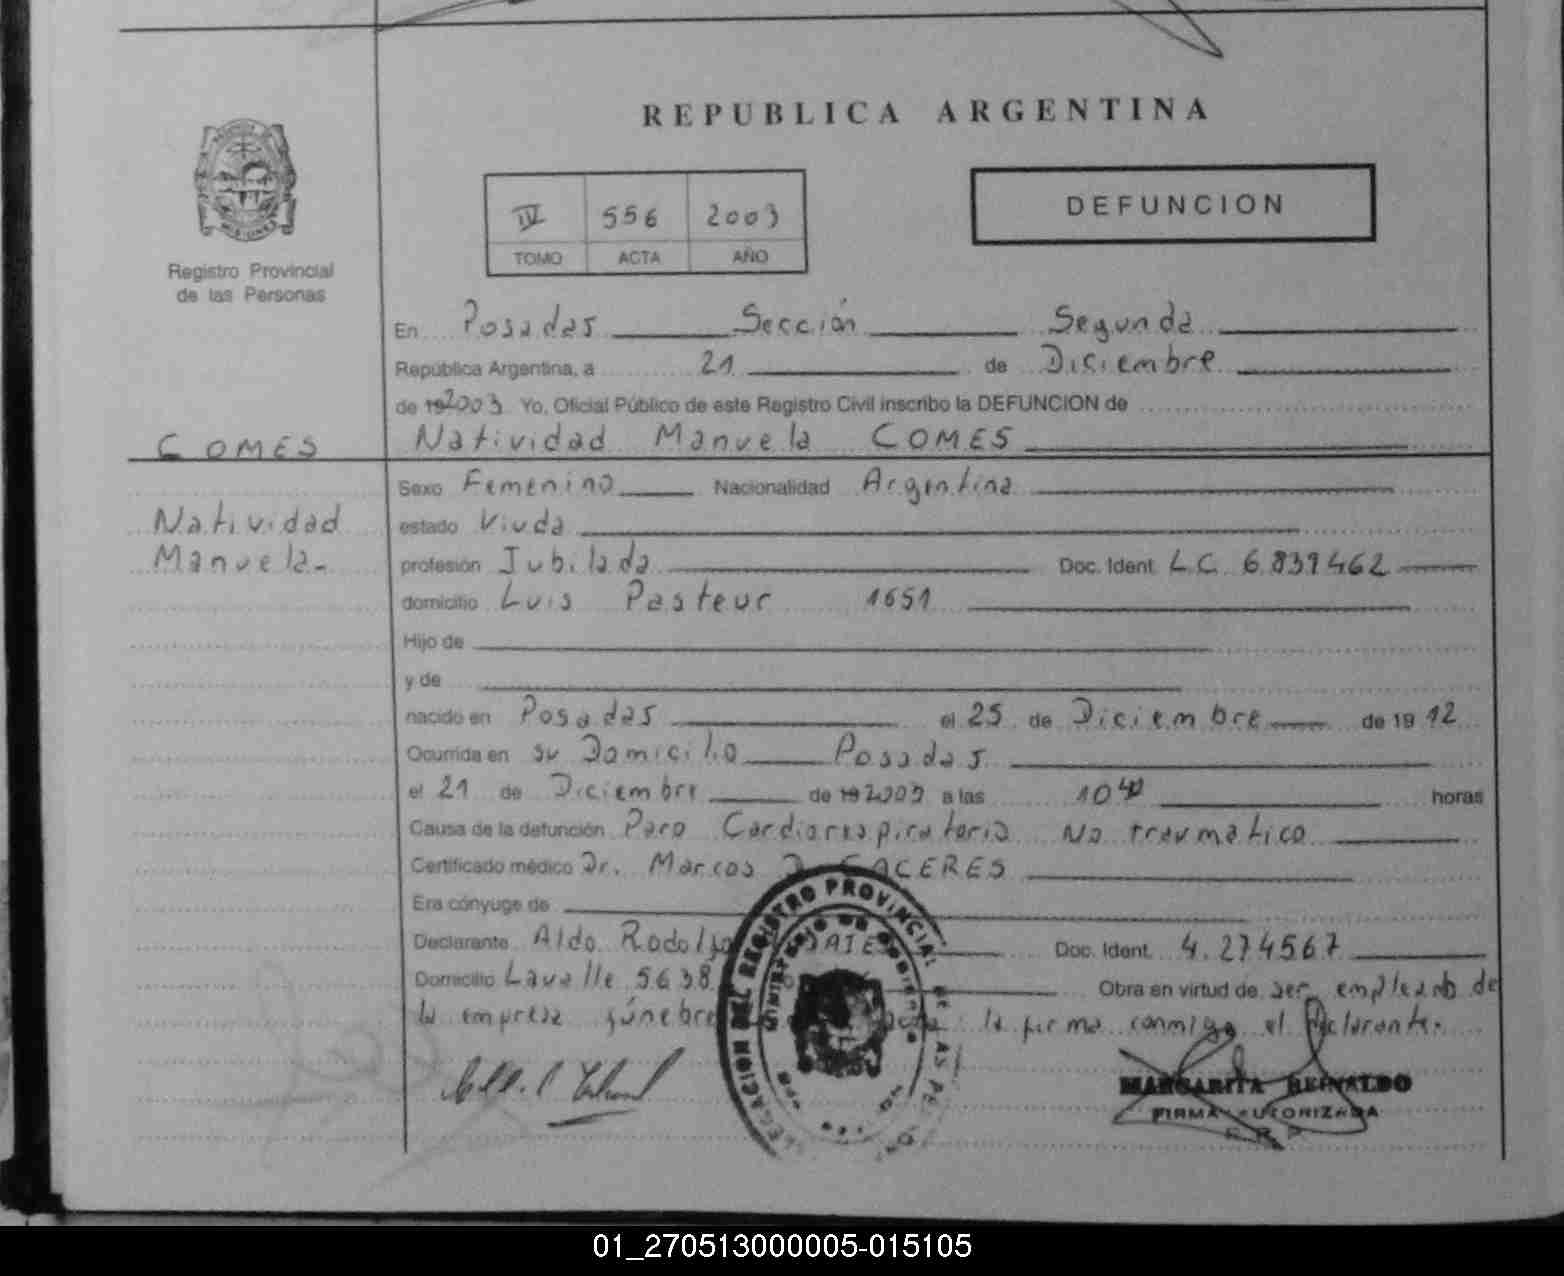 REPUBLICA ARGENTINA
MISIONES
Registro Provincial
de las Personas
IV 556 2003
TOMO ACTA AÑO
DEFUNCION
En Posadas Sección Segunda
República Argentina, a 21 de Diciembre
de 19 2003 Yo, Oficial Público de este Registro Civil inscribo la DEFUNCION de
COMES
Natividad
Manuela.
Natividad Manuela COMES
Sexo Femenino Nacionalidad Argentina
estado Viuda
profesión Jubilada Doc. Ident. L.C. 6.839462
domicilio Luis Pasteur 1651
Hijo de
y de
nacido en Posadas el 25 de Diciembre de 19 12
Ocurrida en su Domicilio Posadas
el 21 de Diciembre de 19 2003 a las 10 40 horas
Causa de la defunción Paro Cardiorrespiratorio No traumatico
Certificado médico Dr. Marcos CACERES
Era cónyuge de
Declarante Aldo Rodolfo Doc. Ident. 4.274567
Domicilio Lavalle 5638 Obra en virtud de ser empleado de
la empresa fúnebre la firma conmigo el Declarante.
DELEGACION DEL REGISTRO PROVINCIAL DE LAS
MINISTERIO DE GOBIERNO
MARGARITA REINALDO
FIRMA AUTORIZADA
01_270513000005-015105